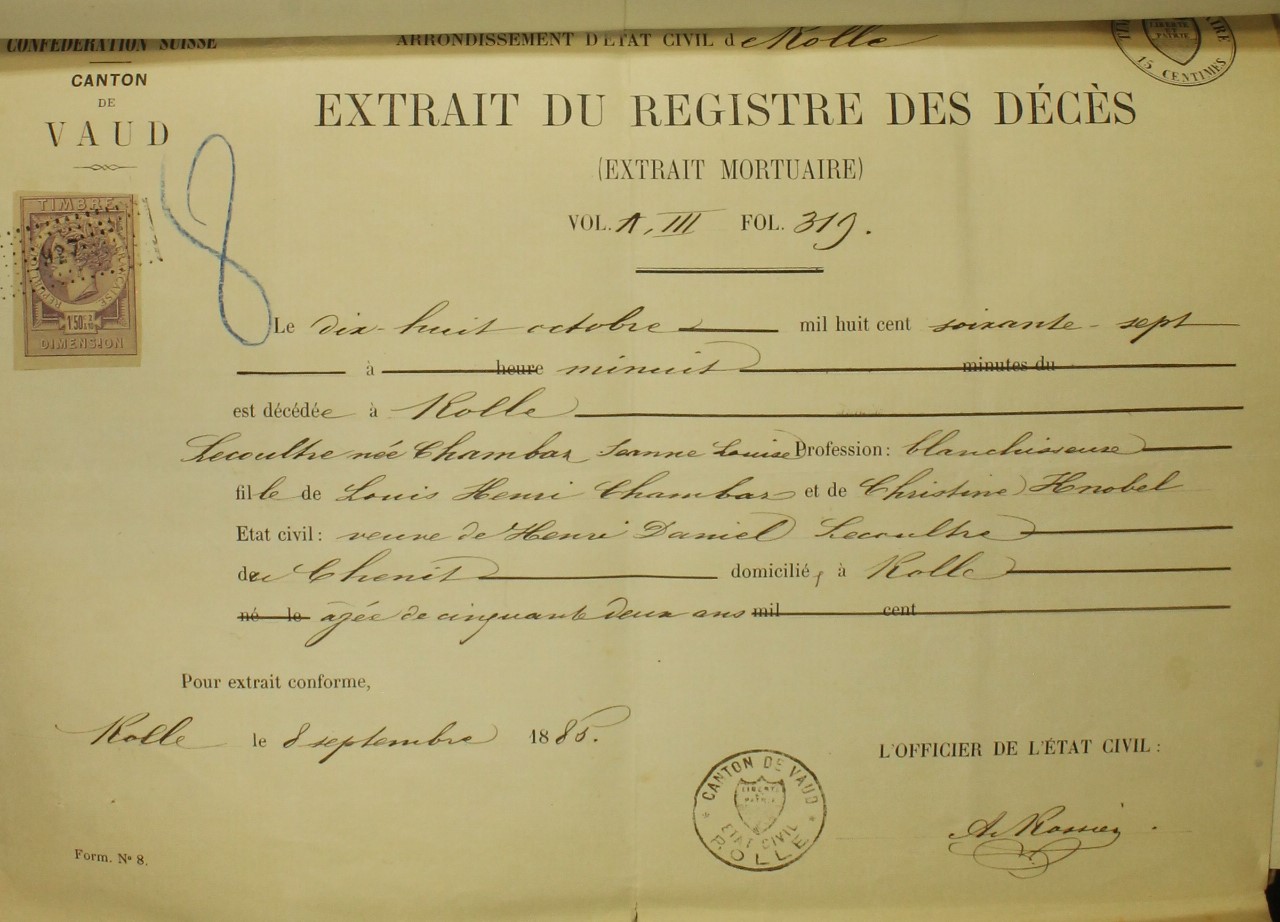 CONFÉDÉRATION SUISSE
ARRONDISSEMENT D'ÉTAT CIVIL de Rolle
CANTON
DE
VAUD
15 CENTIMES
LIBERTÉ
ET
PATRIE
EXTRAIT DU REGISTRE DES DÉCÈS
(EXTRAIT MORTUAIRE)
VOL. A, III FOL. 319.
TIMBRE
1F50C 2/10
DIMENSION
8
Le dix-huit octobre mil huit cent soixante-sept
à heure minuit minutes du
est décédée à Rolle
Lecoultre née Chambaz Jeanne Louise Profession: blanchisseuse
fille de Louis Henri Chambaz et de Christine Knobel
Etat civil: veuve de Henri Daniel Lecoultre
du Chenit domiciliée à Rolle
né le agée de cinquante deux ans mil cent
Pour extrait conforme,
Rolle le 8 septembre 1885.
L'OFFICIER DE L'ÉTAT CIVIL:
CANTON DE VAUD
LIBERTÉ
ET
PATRIE
ETAT CIVIL
ROLLE
A. Rossier
Form. No 8.